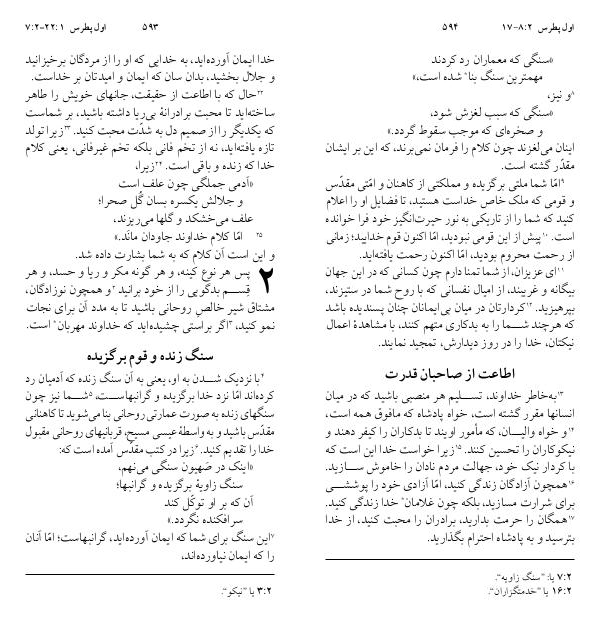 ۷:۲-۲۲:۱ اول پطرس ۵۹۳
خدا ایمان آورده‌اید، به خدایی که او را از مردگان برخیزانید
و جلال بخشید، بدان سان که ایمان و امیدتان بر خداست.
۲۲حال که با اطاعت از حقیقت، جانهای خویش را طاهر
ساخته‌اید تا محبت برادرانهٔ بی‌ریا داشته باشید، بر شماست
که یکدیگر را از صمیم دل به شدّت محبت کنید. ۲۳زیرا تولد
تازه یافته‌اید، نه از تخم فانی بلکه تخم غیرفانی، یعنی کلام
خدا که زنده و باقی است. ۲۴زیرا،
«آدمی جملگی چون علف است
و جلالش یکسره بسان گُل صحرا؛
علف می‌خشکد و گلها می‌ریزند،
۲۵ امّا کلام خداوند جاودان مانَد.»
و این است آن کلام که به شما بشارت داده شد.
۲ پس هر نوع کینه، و هر گونه مکر و ریا و حسد، و هر
قِسم بدگویی را از خود برانید ۲و همچون نوزادگان،
مشتاق شیر خالصِ روحانی باشید تا به مدد آن برای نجات
نمو کنید، ۳اگر براستی چشیده‌اید که خداوند مهربان* است.
سنگ زنده و قوم برگزیده
۴با نزدیک شدن به او، یعنی به آن سنگ زنده که آدمیان رد
کرده‌اند امّا نزد خدا برگزیده و گرانبهاست، ۵شما نیز چون
سنگهای زنده به صورت عمارتی روحانی بنا می‌شوید تا کاهنانی
مقدّس باشید و به واسطهٔ عیسی مسیح، قربانیهای روحانی مقبول
خدا را تقدیم کنید. ۶زیرا در کتب مقدّس آمده است که:
«اینک در صَهیون سنگی می‌نهم،
سنگ زاویهٔ برگزیده و گرانبها؛
آن که بر او توکّل کند
سرافکنده نگردد.»
۷این سنگ برای شما که ایمان آورده‌اید، گرانبهاست؛ امّا آنان
را که ایمان نیاورده‌اند،
۳:۲ یا "نیکو".
اول پطرس ۱۷-۸:۲ ۵۹۴
«سنگی که معماران رد کردند
مهمترین سنگ بنا* شده است،»
۸و نیز،
«سنگی که سبب لغزش شود،
و صخره‌ای که موجب سقوط گردد.»
اینان می‌لغزند چون کلام را فرمان نمی‌برند، که این بر ایشان
مقدّر گشته است.
۹امّا شما ملتی برگزیده و مملکتی از کاهنان و امّتی مقدّس
و قومی که ملک خاص خداست هستید، تا فضایل او را اعلام
کنید که شما را از تاریکی به نور حیرت‌انگیز خود فرا خوانده
است. ۱۰پیش از این قومی نبودید، امّا اکنون قوم خدایید؛ زمانی
از رحمت محروم بودید، امّا اکنون رحمت یافته‌اید.
۱۱ای عزیزان، از شما تمنا دارم چون کسانی که در این جهان
بیگانه و غریبند، از امیال نفسانی که با روح شما در ستیزند،
بپرهیزید. ۱۲کردارتان در میان بی‌ایمانان چنان پسندیده باشد
که هرچند شما را به بدکاری متهم کنند، با مشاهدهٔ اعمال
نیکتان، خدا را در روز دیدارش، تمجید نمایند.
اطاعت از صاحبان قدرت
۱۳به‌خاطر خداوند، تسلیم هر منصبی باشید که در میان
انسانها مقرر گشته است، خواه پادشاه که مافوق همه است،
۱۴و خواه والیان، که مأمور اویند تا بدکاران را کیفر دهند و
نیکوکاران را تحسین کنند. ۱۵زیرا خواست خدا این است که
با کردار نیک خود، جهالت مردم نادان را خاموش سازید.
۱۶همچون آزادگان زندگی کنید، امّا آزادی خود را پوششی
برای شرارت مسازید، بلکه چون غلامان* خدا زندگی کنید.
۱۷همگان را حرمت بدارید، برادران را محبت کنید، از خدا
بترسید و به پادشاه احترام بگذارید.
۷:۲ یا: "سنگ زاویه".
۱۶:۲ یا "خدمتگزاران".